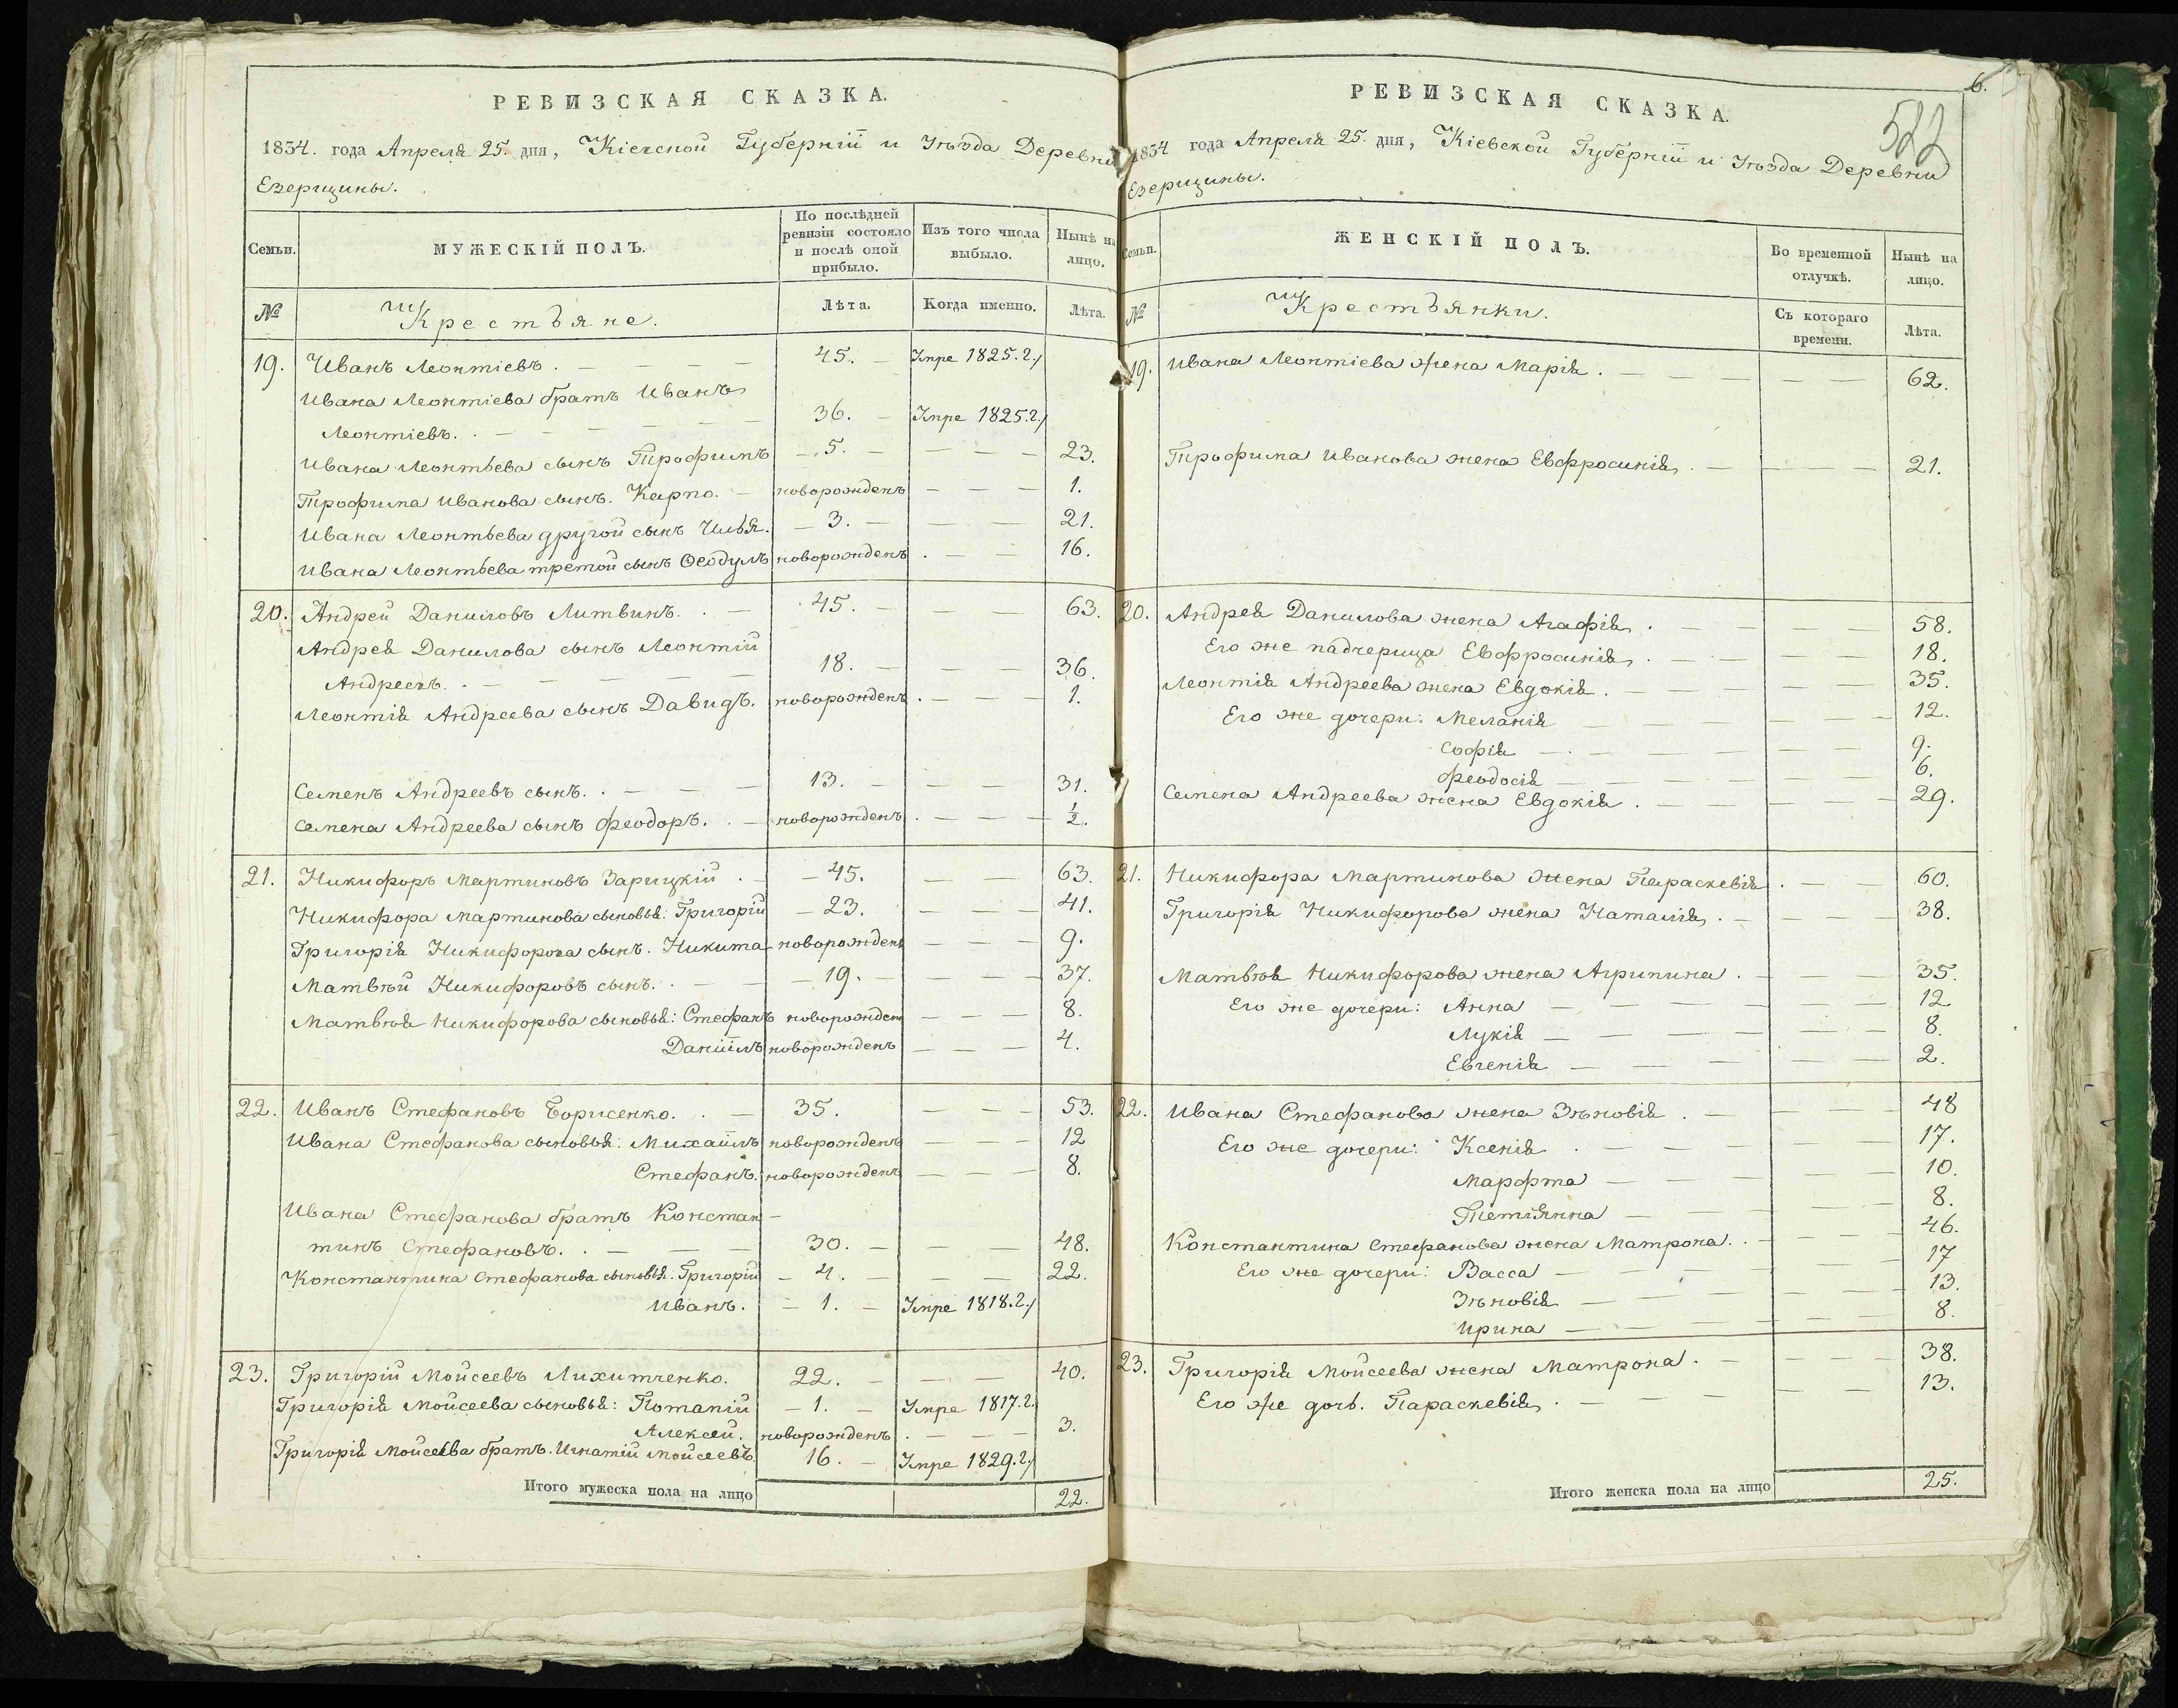 РЕВИЗСКАЯ СКАЗКА.
1834. года Апреля 25. дня, Кіевской Губерніи и Уѣзда Деревни
Езерщины.
Семьи.
МУЖЕСКІЙ ПОЛЪ.
По послѣдней ревизіи состояло и послѣ оной прибыло.
Изъ того числа выбыло.
Нынѣ на лицо.
№
Крестьяне.
Лѣта.
Когда именно.
Лѣта.
19. Иванъ Леонтіевъ. 45. Умре 1825. г.
Ивана Леонтіева братъ Иванъ
Леонтіевъ. 36. Умре 1825. г.
Ивана Леонтьева сынъ Трофимъ 5. 23.
Трофима Иванова сынъ. Карпо. новорожденъ 1.
Ивана Леонтьева другой сынъ Илья. 3. 21.
Ивана Леонтьева третой сынъ Ѳеодулъ новорожденъ 16.
20. Андрей Даниловъ Литвинъ. 45. 63.
Андрея Данилова сынъ Леонтій
Андреевъ. 18. 36.
Леонтія Андреева сынъ Давидъ. новорожденъ 1.
Семенъ Андреевъ сынъ. 13. 31.
Семена Андреева сынъ Феодоръ. новорожденъ ½.
21. Никифоръ Мартиновъ Зарицкій. 45. 63.
Никифора Мартинова сыновья: Григорій 23. 41.
Григорія Никифорова сынъ. Никита новорожденъ 9.
Матвѣй Никифоровъ сынъ. 19. 37.
Матвѣя Никифорова сыновья: Стефанъ новорожден 8.
Даніилъ новорожденъ 4.
22. Иванъ Стефановъ Борисенко. 35. 53.
Ивана Стефанова сыновья: Михаилъ новорожденъ 12
Стефанъ. новорожденъ 8.
Ивана Стефанова братъ Констан-
тинъ Стефановъ. 30. 48.
Константина Стефанова сыновья: Григорій 4. 22.
Иванъ. 1. Умре 1818. г.
23. Григорій Мойсеевъ Лихитченко. 22. 40.
Григорія Мойсеева сыновья: Потапій 1. Умре 1817. г.
Алексей. новорожденъ 3.
Григорія Мойсеева братъ. Игнатій Мойсеевъ 16. Умре 1829. г.
Итого мужеска пола на лицо 22.
6.
522
РЕВИЗСКАЯ СКАЗКА.
1834 года Апреля 25. дня, Кіевской Губерніи и Уѣзда Деревни
Езерщины.
Семьи.
ЖЕНСКІЙ ПОЛЪ.
Во временной отлучкѣ.
Нынѣ на лицо.
№
Крестьянки.
Съ котораго времени.
Лѣта.
19. Ивана Леонтіева жена Марія. 62.
Трофима Иванова жена Евфросинія. 21.
20. Андрея Данилова жена Агафія. 58.
Его же падчерица Евфросинія. 18.
Леонтія Андреева жена Евдокія. 35.
Его же дочери: Меланія 12.
Софія 9.
Феодосія 6.
Семена Андреева жена Евдокія. 29.
21. Никифора Мартинова жена Параскевія. 60.
Григорія Никифорова жена Наталія. 38.
Матвѣя Никифорова жена Агрипина. 35.
Его же дочери: Анна 12
Лукія 8.
Евгенія 2.
22. Ивана Стефанова жена Зѣновія. 48
Его же дочери: Ксенія 17.
Марфта 10.
Тетіянна 8.
Константина Стефанова жена Матрона. 46.
Его же дочери: Васса 17
Зѣновія 13.
Ирина 8.
23. Григорія Мойсеева жена Матрона. 38.
Его же дочь. Параскевія. 13.
Итого женска пола на лицо 25.